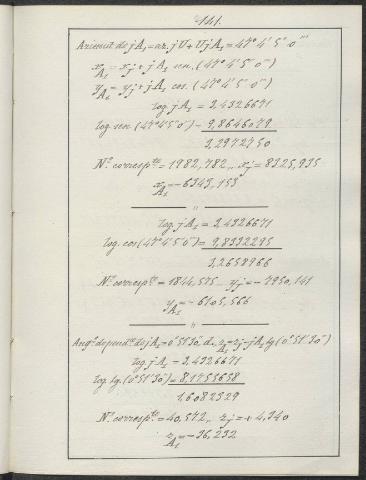 141.
Azimut de jA₁ = az. jU + UjA₁ = 47° 4' 5" 0'''
x_A₁ = x_j + jA₁ sen. (47° 4' 5" 0''')
y_A₁ = y_j + jA₁ cos. (47° 4' 5" 0''')
log. jA₁ = 3,4326671
log. sen. (47° 4' 5" 0''') = 9,8646079
3,2972750
N.º corresp.te = 1982,782 „ x_j = 8325,935
x_A₁ = -6343,153
"
log. jA₁ = 3,4326671
log. cos (47° 4' 5" 0''') = 9,8332295
3,2658966
N.º corresp.te = 1844,575 „ y_j = -7950,141
y_A₁ = -6105,566
"
Ang.º depend.te de jA₁ = 0° 51' 30" d. z_A₁ = z_j - jA₁ tg (0° 51' 30")
log. jA₁ - 3,4326671
log. tg. (0° 51' 30") = 8,1755658
1,6082329
N.º corresp.te = 40,572 „ z_j = + 4,340
z_A₁ = -36,232